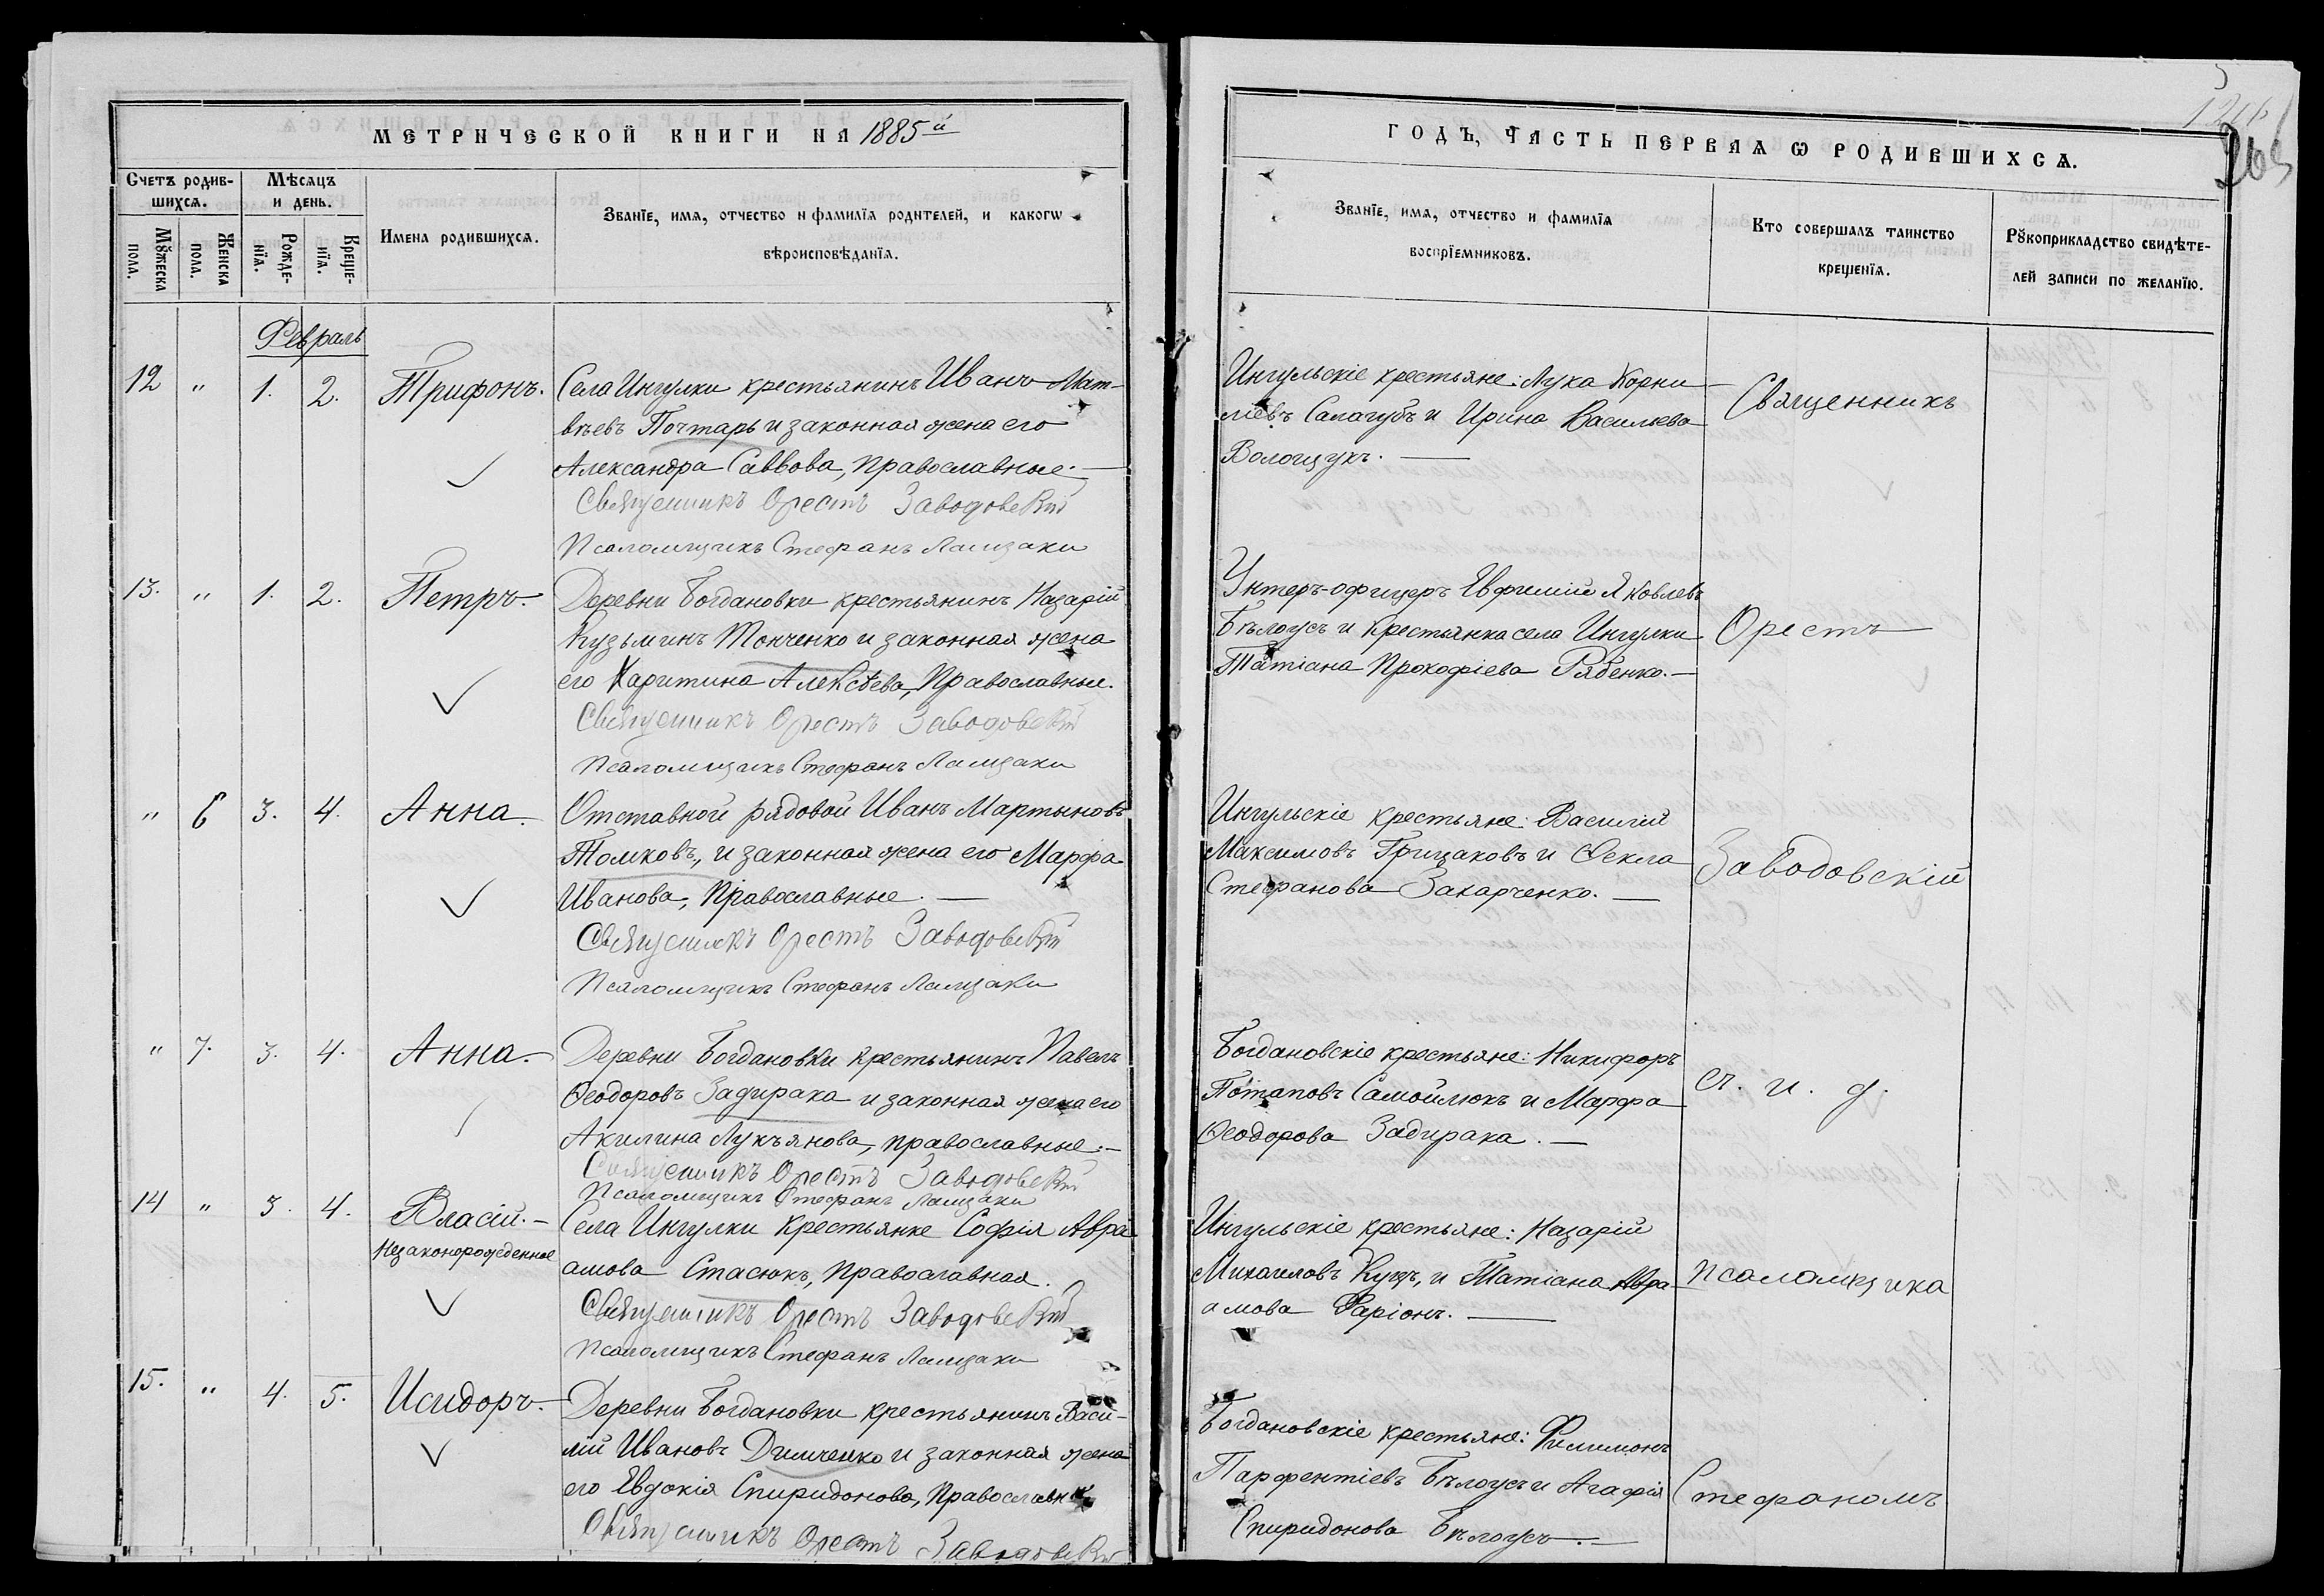 МЕТРИЧЕСКОЙ КНИГИ НА 1885й
Счетъ родив-
шихся.
Мѣсяцъ
и день.
Имена родившихся.
Званїе, имя, отчество и фамилїя родителей, и какогѡ
вѣроисповѣданїя.
Мꙋжеска
пола.
Женска
пола.
Рожде-
нїя.
Креще-
нїя.
Февраль
12 " 1. 2. Трифонъ. Села Ингулки крестьянинъ Иванъ Мат-
вѣевъ Почтарь и законная жена его
Александра Саввова, православные. —
Священникъ Орестъ Заводовскій
Псаломщикъ Стефанъ
13. " 1. 2. Петръ. Деревни Богдановки крестьянинъ Назарій
Кузьминъ Тонченко и законная жена
его Харитина Алексѣева, Православные.
Священникъ Орестъ Заводовскій
Псаломщикъ Стефанъ
" 6 3. 4. Анна. Отставной рядовой Иванъ Мартыновъ
Томковъ, и законная жена его Марфа
Иванова, Православные. —
Священникъ Орестъ Заводовскій
Псаломщикъ Стефанъ
" 7. 3. 4. Анна. — Деревни Богдановки крестьянинъ Павелъ
Ѳеодоровъ Задирака и законная жена его
Акилина Лукъянова, православные. —
Священникъ Орестъ Заводовскій
Псаломщикъ Стефанъ
14 " 3. 4. Власій. — Села Ингулки крестьянке Софія Авра
Незаконорожденное
амова Стасюкъ, Православная.
Священникъ Орестъ Заводовскій
Псаломщикъ Стефанъ
15. " 4. 5. Исидоръ. Деревни Богдановки крестьянинъ Васи-
лій Ивановъ Димченко и законная жена
его Евдокія Спиридонова, Православные
Священникъ Орестъ Заводовскій
ГОДЪ, ЧАСТЬ ПЕРВАЯ Ѡ РОДИВШИХСЯ.
265
Званїе, имя, отчество и фамилїя
воспрїемниковъ.
Кто совершалъ таинство
крещенїя.
Рꙋкоприкладство свидѣте-
лей записи по желанїю.
Ингульскіе крестьяне: Лука Корни-
ліевъ Салагубъ и Ирина Васильева
Волощукъ. —
Унтеръ-офицеръ Евфимій Яковлевъ
Бѣлоусъ и крестьянка села Ингулки
Татіана Прокофіева Рябенко. —
Ингульскіе крестьяне: Василій
Максимовъ Грицаковъ и Ѳекла
Стефанова Захарченко. —
Богдановскіе крестьяне: Никифоръ
Потаповъ Самойлюкъ и Марфа
Ѳеодорова Задирака. —
Ингульскіе крестьяне: Назарій
Михаиловъ Куцъ, и Татіана Авра-
амова Фаріонъ. —
Богдановскіе крестьяне: Филимонъ
Парфентіевъ Бѣлоусъ и Агафія
Спиридонова Бѣлоусъ. —
Священникъ
Орестъ
Заводовскій
съ и. д.
псаломщика
Стефаномъ